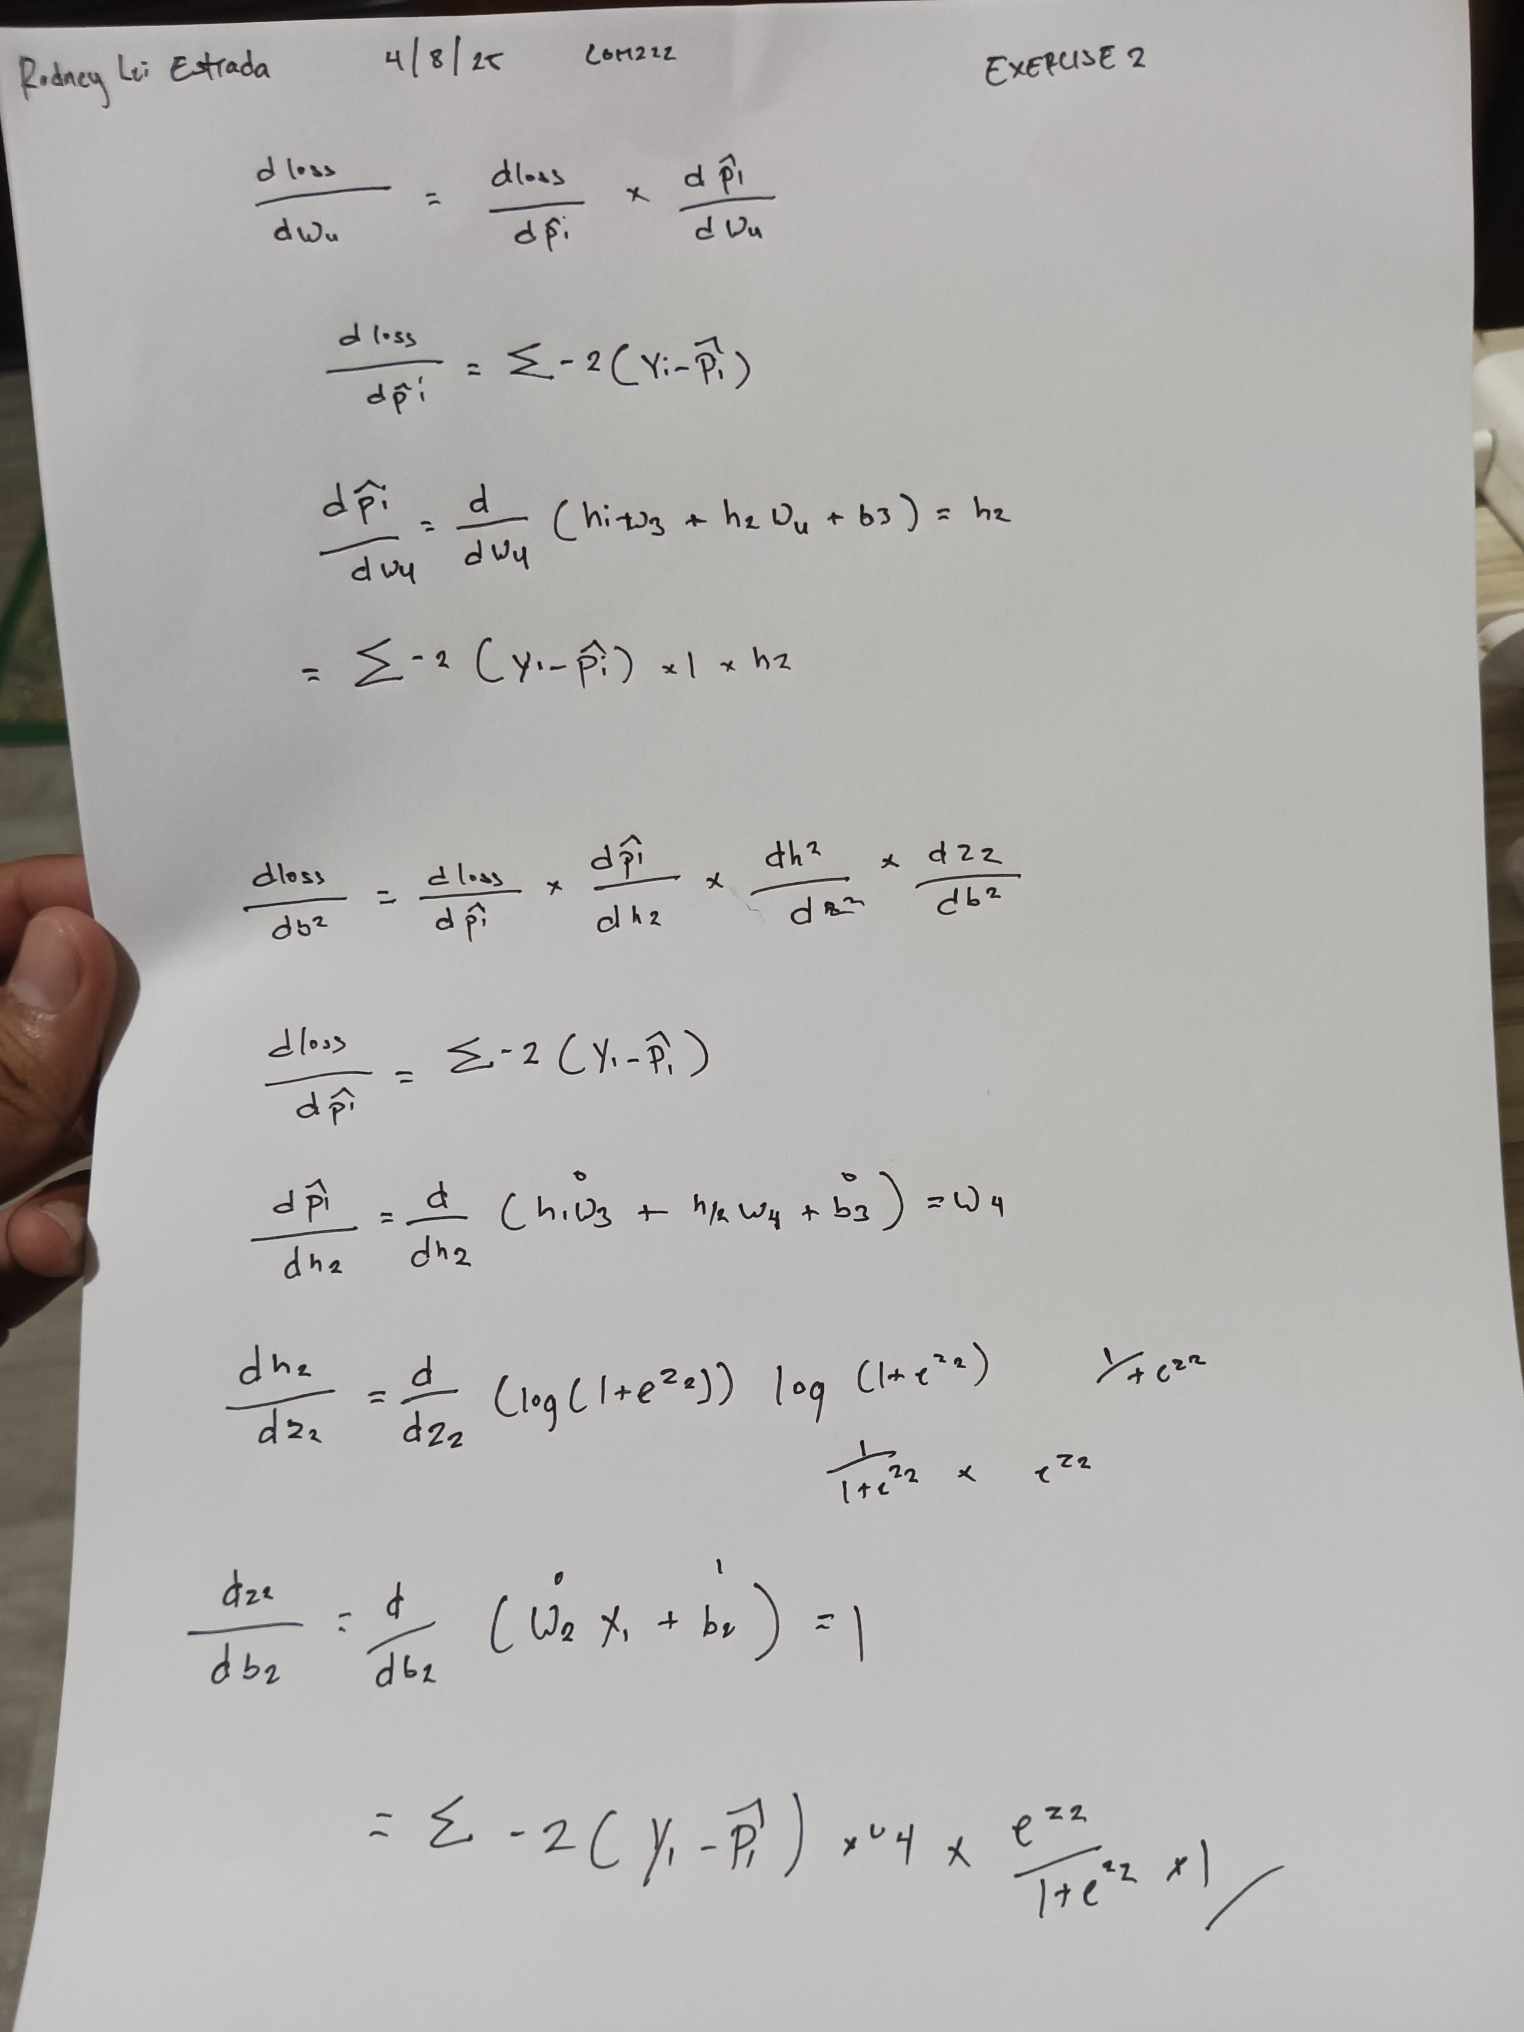 Rodney Lei Estrada 4/8/25 COM222 EXERCISE 2
d loss / dw4 = dloss / dp̂i × d p̂i / d w4
d loss / dp̂i = Σ -2 (Yi - p̂i)
dp̂i / dw4 = d / dw4 (h1w3 + h2 w4 + b3) = h2
= Σ -2 (yi - p̂i) × 1 × h2
dloss / db2 = dloss / dp̂i × dp̂i / dh2 × dh2 / dz2 × dz2 / db2
dloss / dp̂i = Σ -2 (Yi - p̂i)
dp̂i / dh2 = d / dh2 (h1w3 0 + h2 w4 + b3 0) = w4
dh2 / dz2 = d / dz2 (log(1+e^z2)) log (1+e^z2) 1/1+e^z2
1 / 1+e^z2 × e^z2
dz2 / db2 = d / db2 (w2 x1 0 + b2 1) = 1
= Σ -2 (Yi - p̂i) × w4 × e^z2 / 1+e^z2 × 1 /